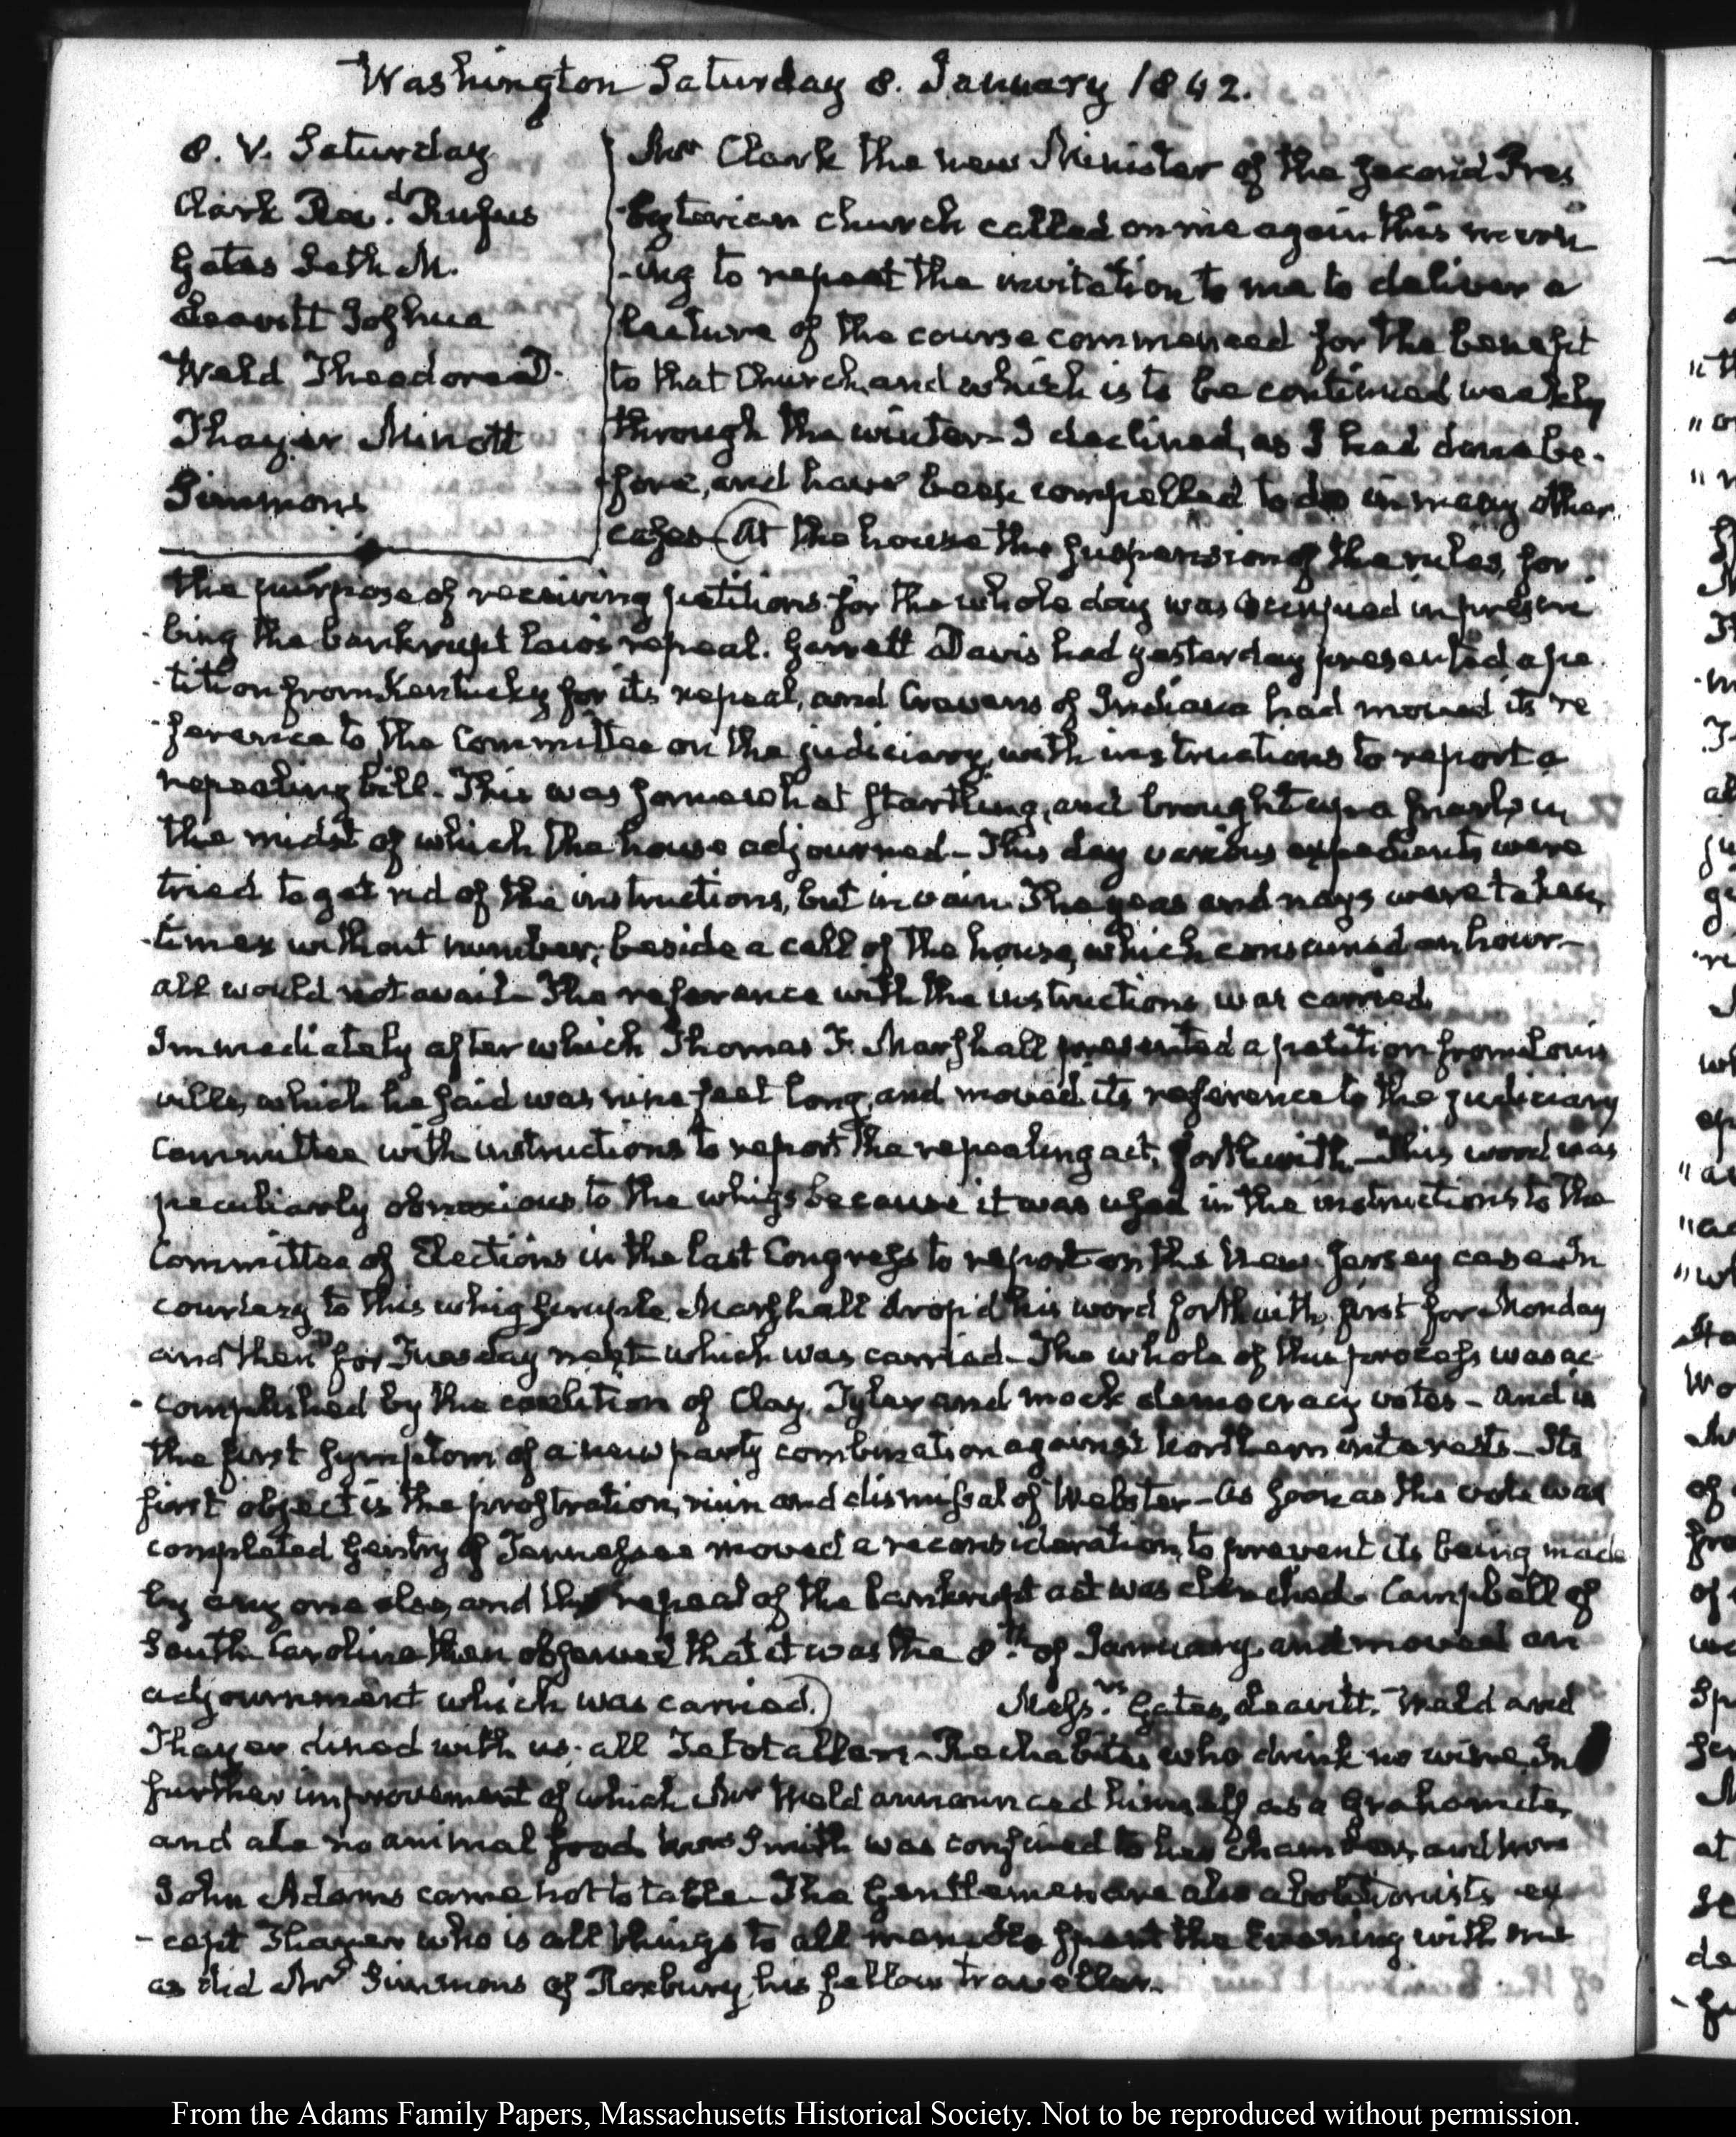 Washington Saturday 8. January 1842.
8. V. Saturday
Clark Rev.d Rufus
Gates Seth M.
Leavitt Joshua
Weld Theodore D.
Thayer Minott
Simmons
Mr Clark the new Minister of the second Pres
-byterian church called on me again this morn
-ing to repeat the invitation to me to deliver a
lecture of the course commenced for the benefit
to that Church, and which is to be continued weekly
through the winter- I declined, as I had done be-
fore, and have been compelled to do in many other
cases- (At the house the suspension of the rules, for
the purpose of receiving petitions for the whole day was in
-bing the bankrupt laws repeal. Garrett Davis had yesterday presented a pe
-tition from Kentucky for its repeal, and Cravens of Indiana had moved its re
-ference to the Committee on the judiciary, with instructions to report a
repealing bill- This was somewhat startling, and brought up a snarl, in
the midst of which the house adjourned- This day various expedients were
tried to get rid of the instructions, but in vain. The yeas and nays were taken,
times without number, beside a call of the house, which consumed an hour-
all would not avail- The reference with the instructions was carried.
Immediately after which Thomas F. Marshall presented a petition from Louis
ville, which he said was nine feet long, and moved its reference to the judiciary
committee with instructions to report the repealing act, forthwith- This word was
peculiarly obnoxious to the whigs because it was used in the instructions to the
Committee of Elections in the last Congress to report on the New-Jersey case- In
courtesy to this whig scruple, Marshall drop'd his word forthwith, first for Monday
and then for Tuesday next- which was carried- The whole of this process was ac
-complished by the coalition of Clay, Tyler and mock democracy votes- and is
the first symptom of a new party combination against Northern interests- Its
first object is the prostration, ruin and dismissal of Webster- As soon as the vote was
completed Gentry of Tennessee moved a reconsideration, to prevent its being made
by any one else, and the repeal of the bankrupt act was clenched- Campbell of
South Carolina then observed that it was the 8th. of January, and moved an
adjournment which was carried.) Messrs. Gates, Leavitt, Weld and
Thayer dined with us; all Tetotallers- Rechabites who drink no wine. In
further improvement of which Mr Weld announced himself as a Grahamite,
and ate no animal food. Mrs Smith was confined to her chamber, and Mrs
John Adams came not to table- The Gentlemen are also abolitionists ex
-cept Thayer who is all things to all men- He spent the Evening with me
as did Mr Simmons of Roxbury, his fellow traveller.
From the Adams Family Papers, Massachusetts Historical Society. Not to be reproduced without permission.